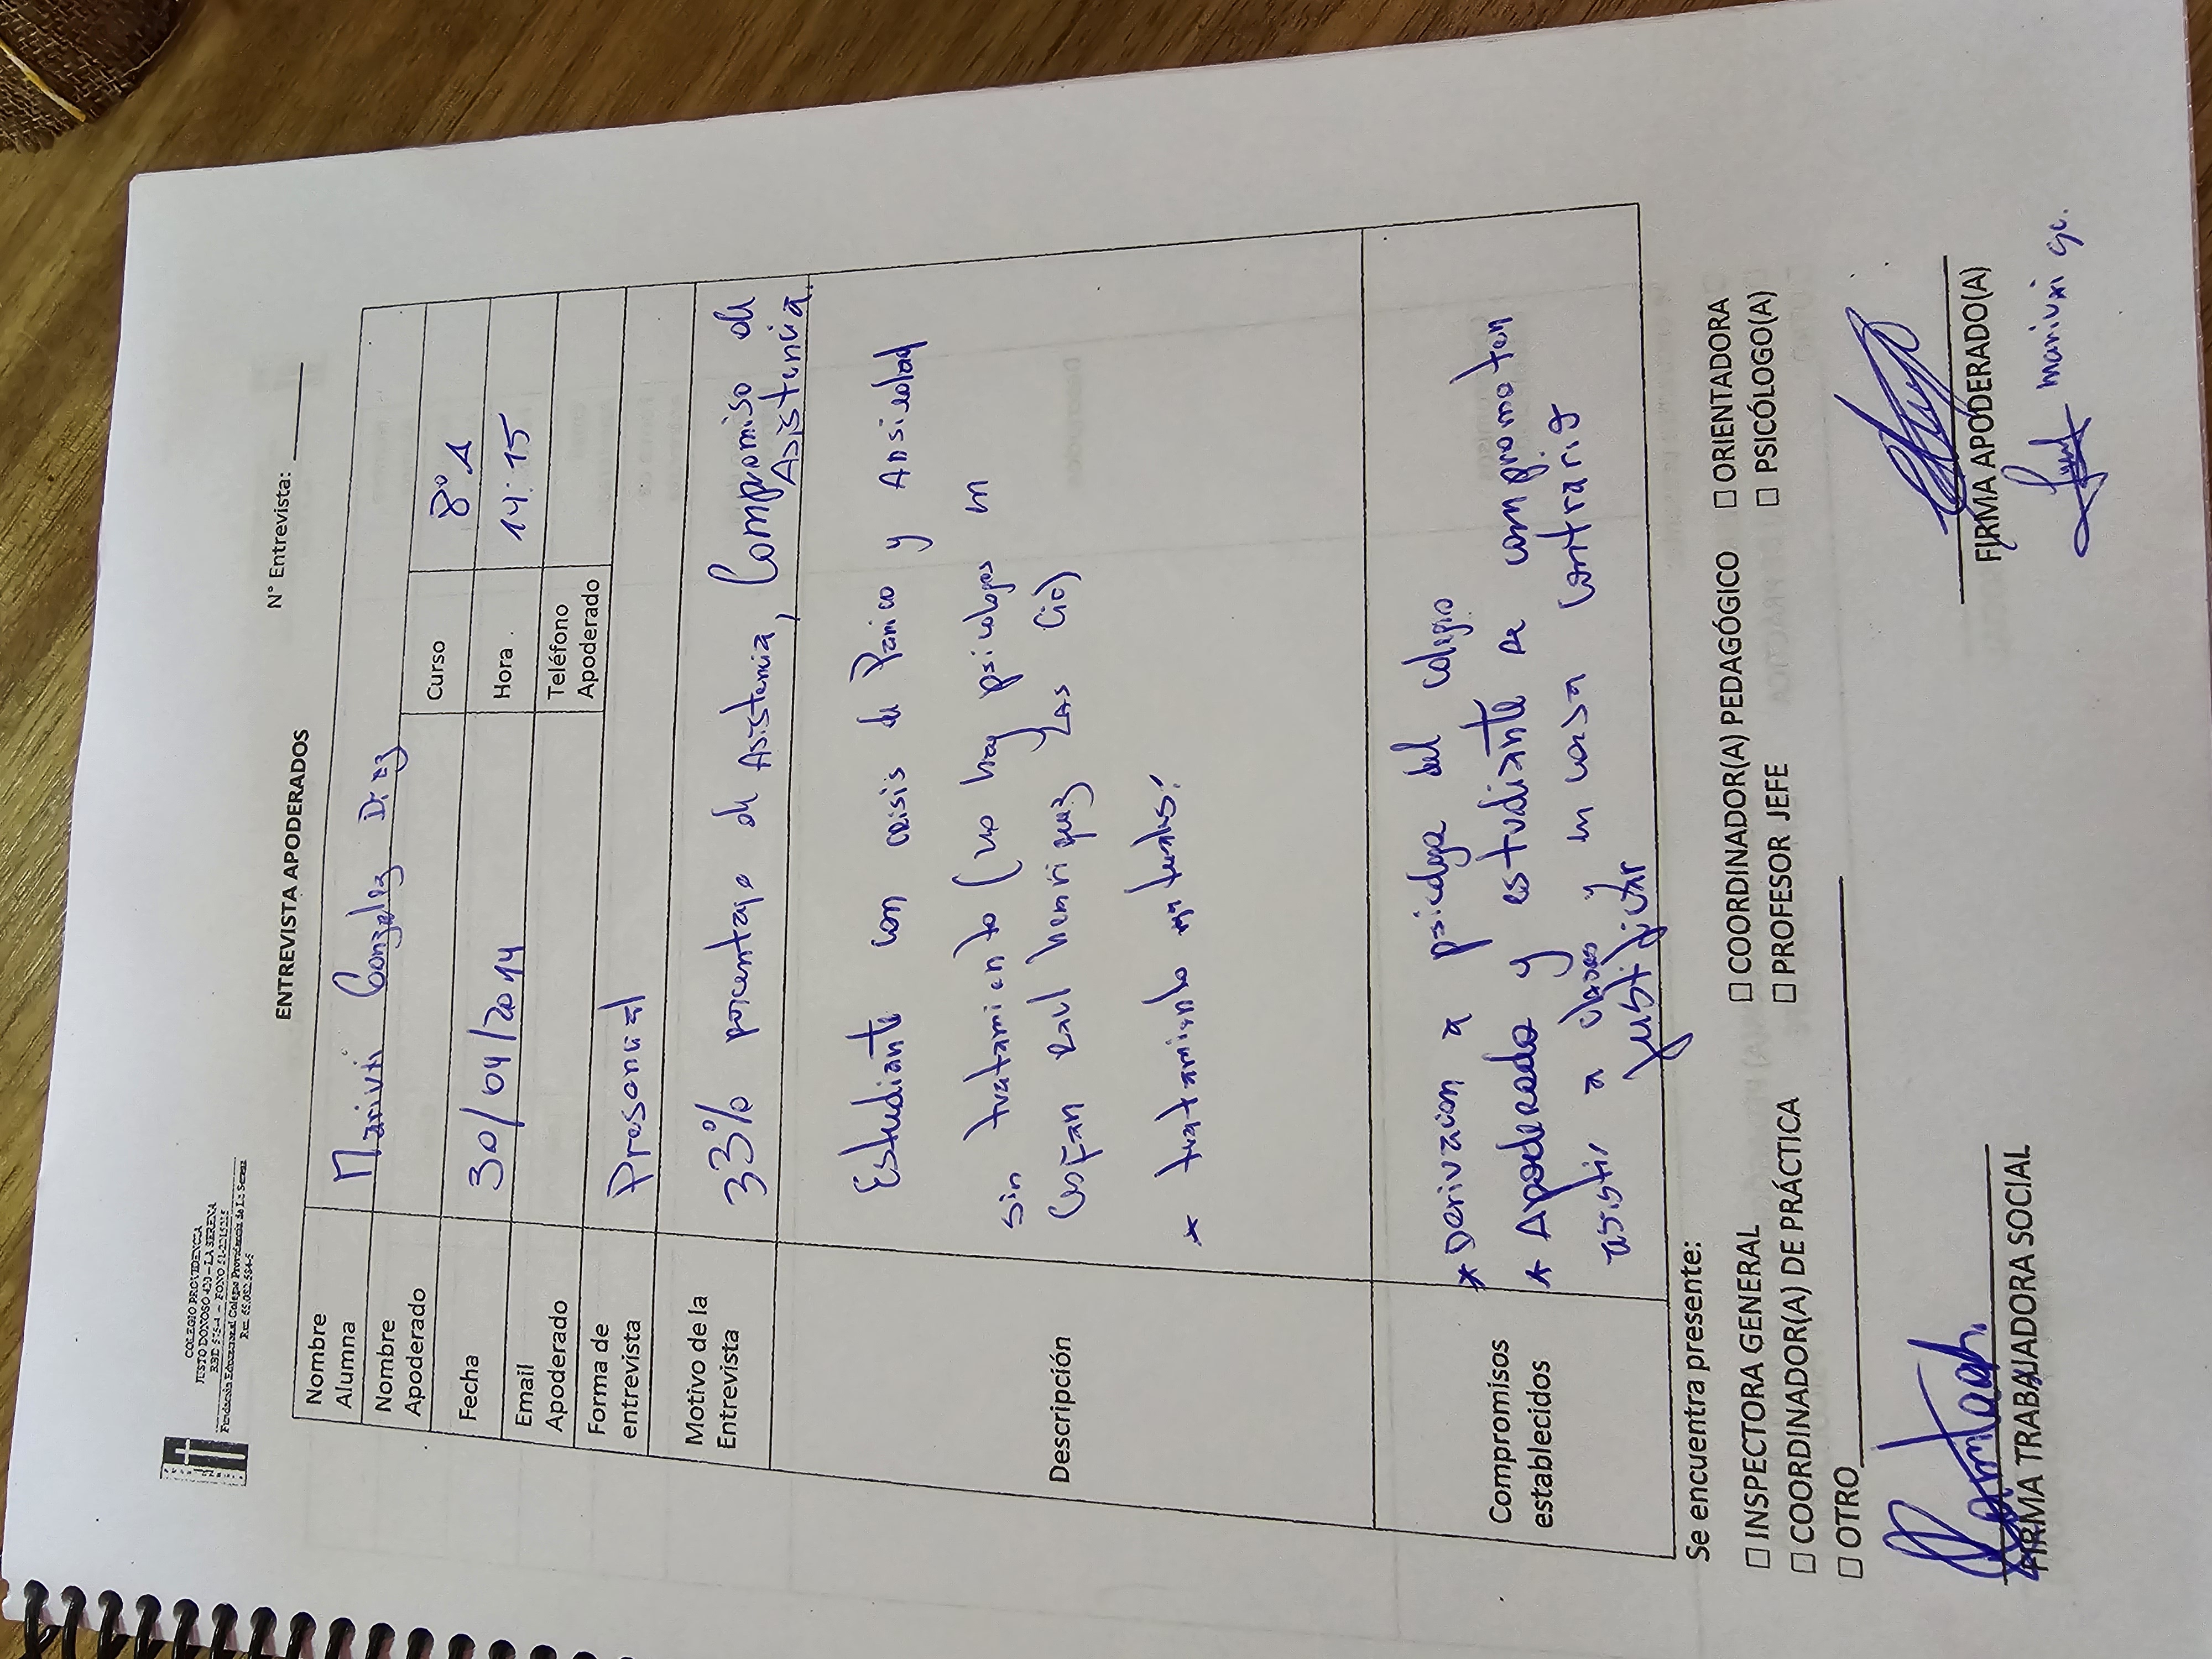 COLEGIO PROVIDENCIA
JUSTO DONOSO 420 – LA SERENA
RBD 575-4 – FONO
Fundación Educacional Colegio Providencia de La Serena
ENTREVISTA APODERADOS
N° Entrevista: ______
Nombre Alumna Marivi Gonzalez Diaz
Nombre Apoderado
Curso 8° A
Fecha 30/04/2014
Hora 14:15
Email Apoderado
Teléfono Apoderado
Forma de entrevista Presencial
Motivo de la Entrevista 33% porcentaje de Asistencia, Compromiso de
Asistencia.
Descripción
Estudiante con crisis de Pánico y Ansiedad
sin tratamiento (no hay psicologos en
Cesfan Raul henriquez y Las Cias)
* tratamiento naturales.
Compromisos establecidos
* Derivacion a psicologa del colegio
* Apoderado y estudiante se comprometen
asistir a clases y en caso contrario
justificar
Se encuentra presente:
□ INSPECTORA GENERAL □ COORDINADOR(A) PEDAGÓGICO □ ORIENTADORA
□ COORDINADOR(A) DE PRÁCTICA □ PROFESOR JEFE □ PSICÓLOGO(A)
□ OTRO
FIRMA TRABAJADORA SOCIAL
FIRMA APODERADO(A)